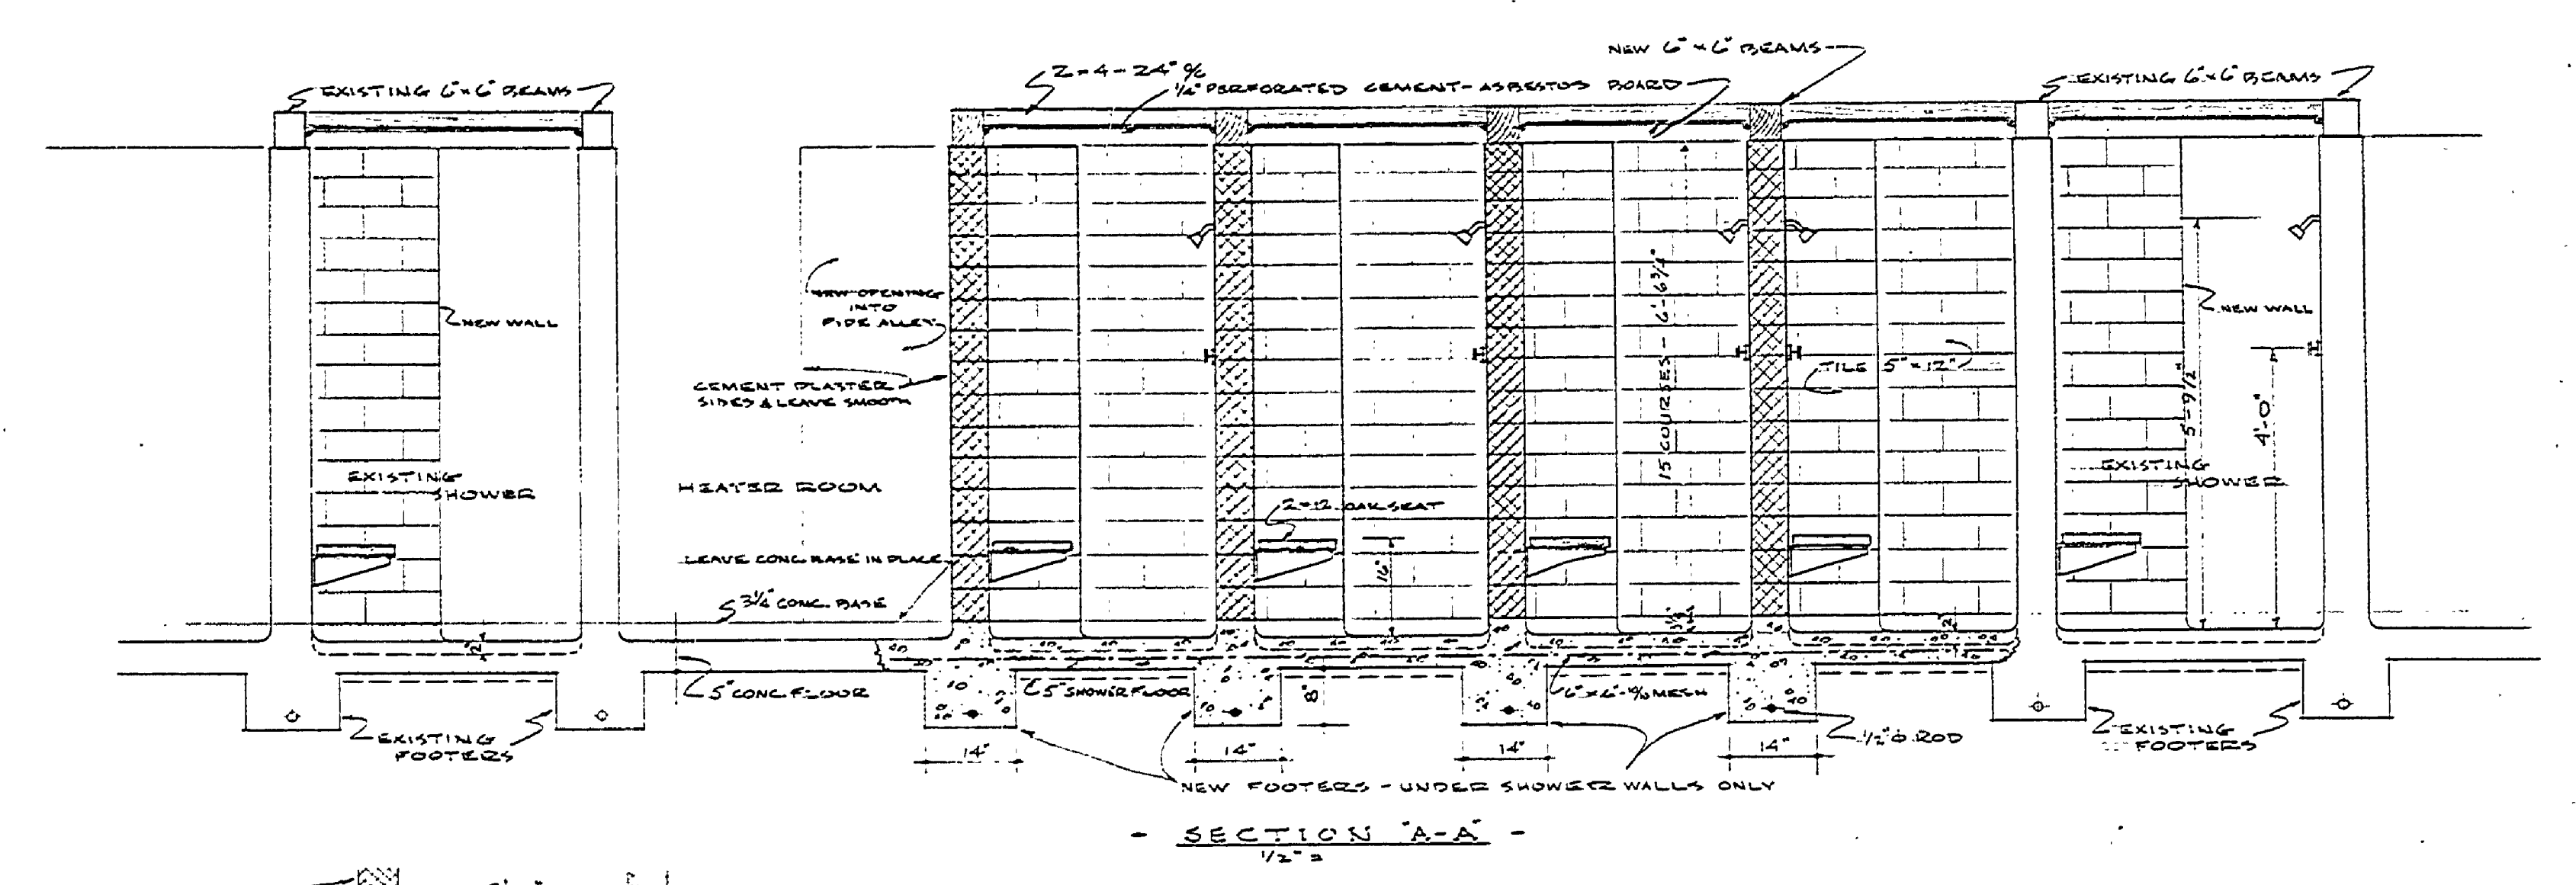 NEW 6" × 6" BEAMS
EXISTING 6" × 6" BEAMS
2 × 4 - 24" %
1/4" PERFORATED CEMENT-ASBESTOS BOARD
EXISTING 6" × 6" BEAMS
NEW OPENING
INTO
PIPE ALLEY
NEW WALL
CEMENT PLASTER
SIDES & LEAVE SMOOTH
15 COURSES - 6'-6 3/4"
TILE 5" × 12"
NEW WALL
5'-9 1/2"
4'-0"
EXISTING
SHOWER
HEATER ROOM
2 × 12 OAK SEAT
16"
EXISTING
SHOWER
LEAVE CONC. BASE IN PLACE
3 1/4" CONC. BASE
2"
2"
5" CONC. FLOOR
5" SHOWER FLOOR
8"
6" × 6" - MESH
1/2" Φ ROD
EXISTING
FOOTERS
14"
14"
14"
14"
EXISTING
FOOTERS
NEW FOOTERS - UNDER SHOWER WALLS ONLY
- SECTION "A-A" -
1/2" =